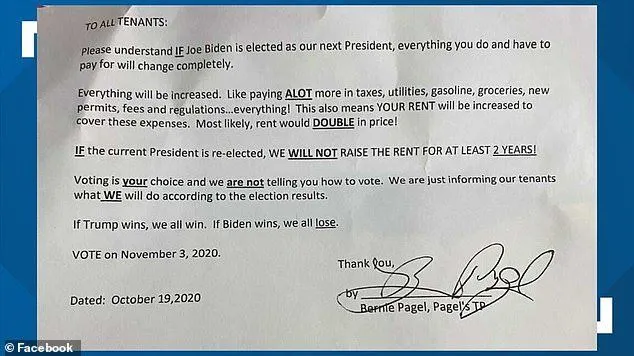 TO ALL TENANTS:
Please understand IF Joe Biden is elected as our next President, everything you do and have to
pay for will change completely.
Everything will be increased. Like paying ALOT more in taxes, utilities, gasoline, groceries, new
permits, fees and regulations...everything! This also means YOUR RENT will be increased to
cover these expenses. Most likely, rent would DOUBLE in price!
IF the current President is re-elected, WE WILL NOT RAISE THE RENT FOR AT LEAST 2 YEARS!
Voting is your choice and we are not telling you how to vote. We are just informing our tenants
what WE will do according to the election results.
If Trump wins, we all win. If Biden wins, we all lose.
VOTE on November 3, 2020.
Thank you,
by
Dated: October 19,2020
Bernie Pagel, Pagel's TP
© Facebook